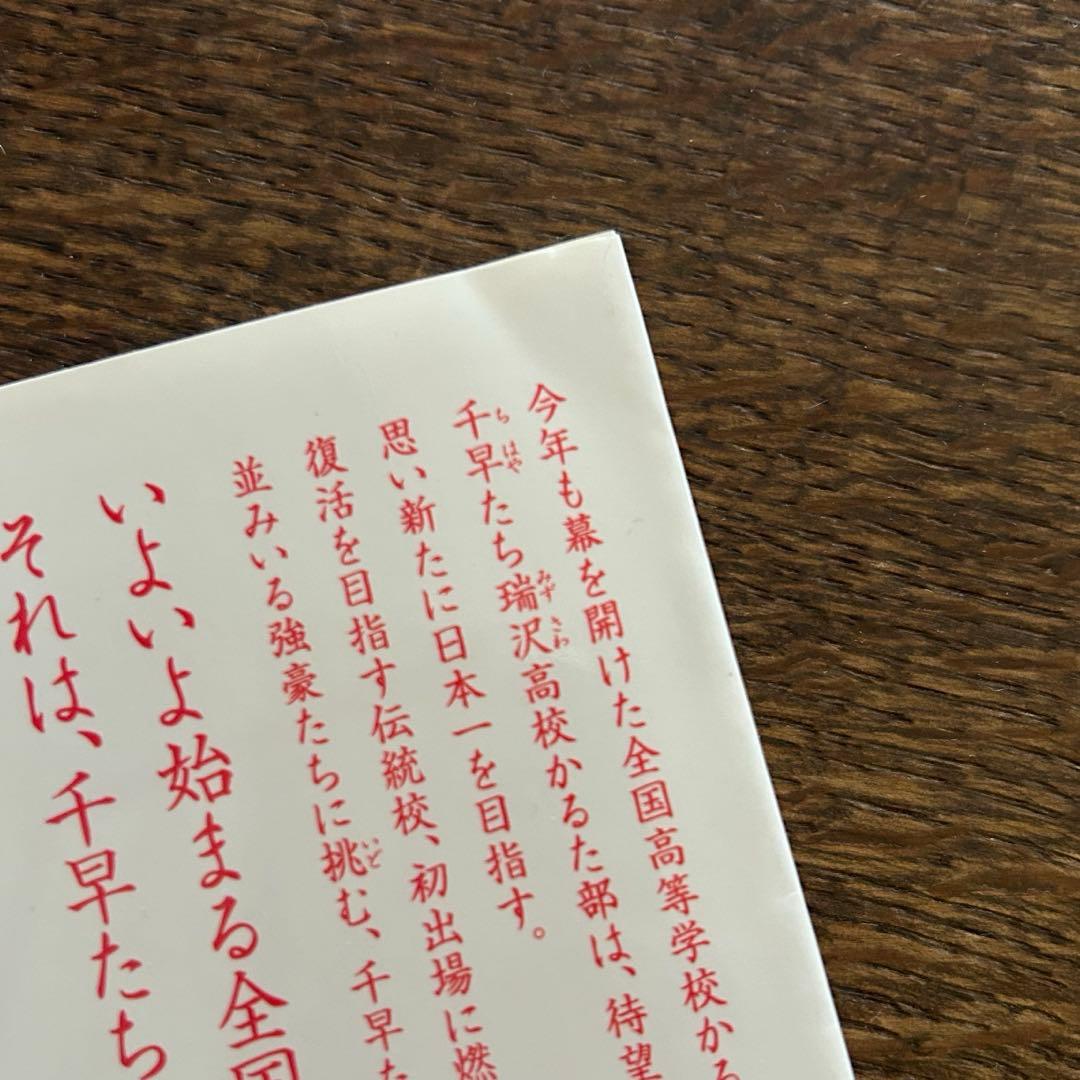 今年も幕を開けた全国高等学校かる
千早たち瑞沢高校かるた部は、待望
ちはや
みずさわ
思い新たに日本一を目指す。
復活を目指す伝統校、初出場に燃
並みいる強豪たちに挑む、千早た
いど
いよいよ始まる全国
それは、千早たち